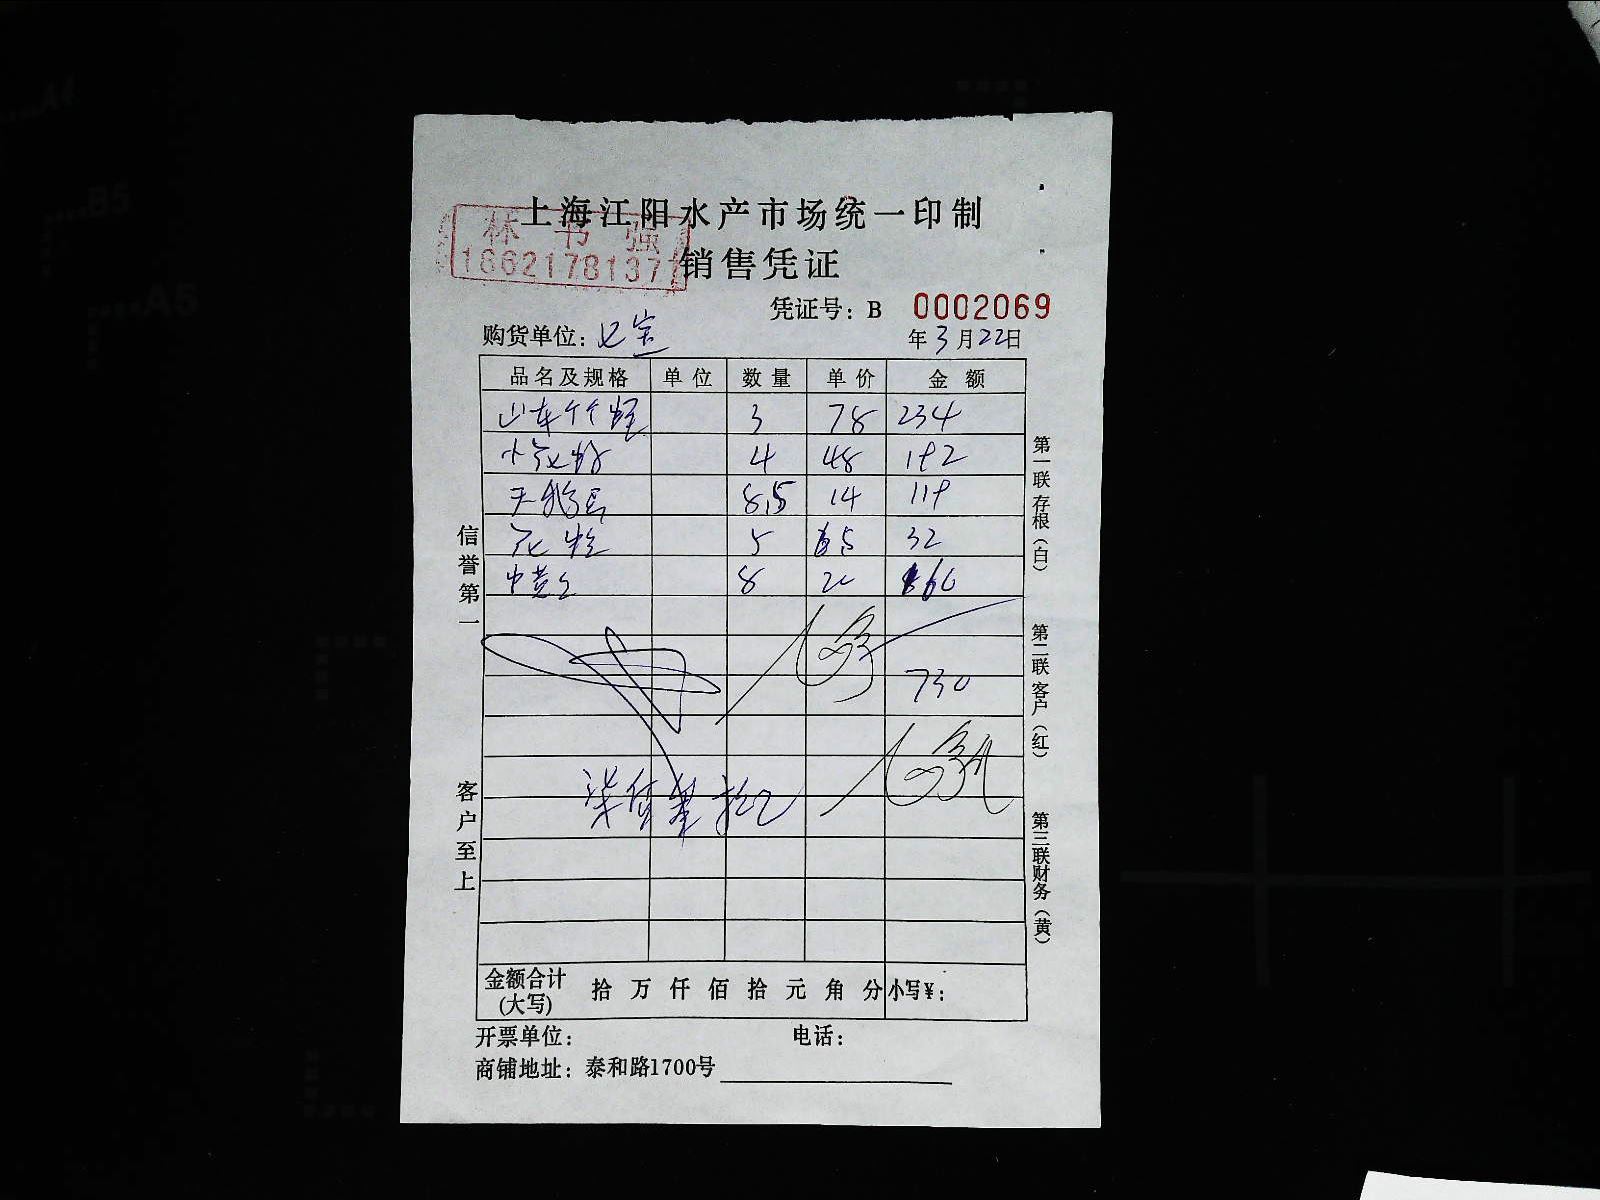 上海江阳水产市场统一印制
林书强
18621781377
销售凭证
凭证号：B 0002069
购货单位：七宝
年3月22日
品名及规格 单位 数量 单价 金额
山东 3 78 234
4 48 192
8.5 14 119
花 5 6.5 32
中黄 8 20 160
730
柒佰叁拾
金额合计(大写) 拾万仟佰拾元角分 小写¥：
开票单位： 电话：
商铺地址：泰和路1700号
信誉第一
客户至上
第一联存根（白）
第二联客户（红）
第三联财务（黄）
A4
B5
A5